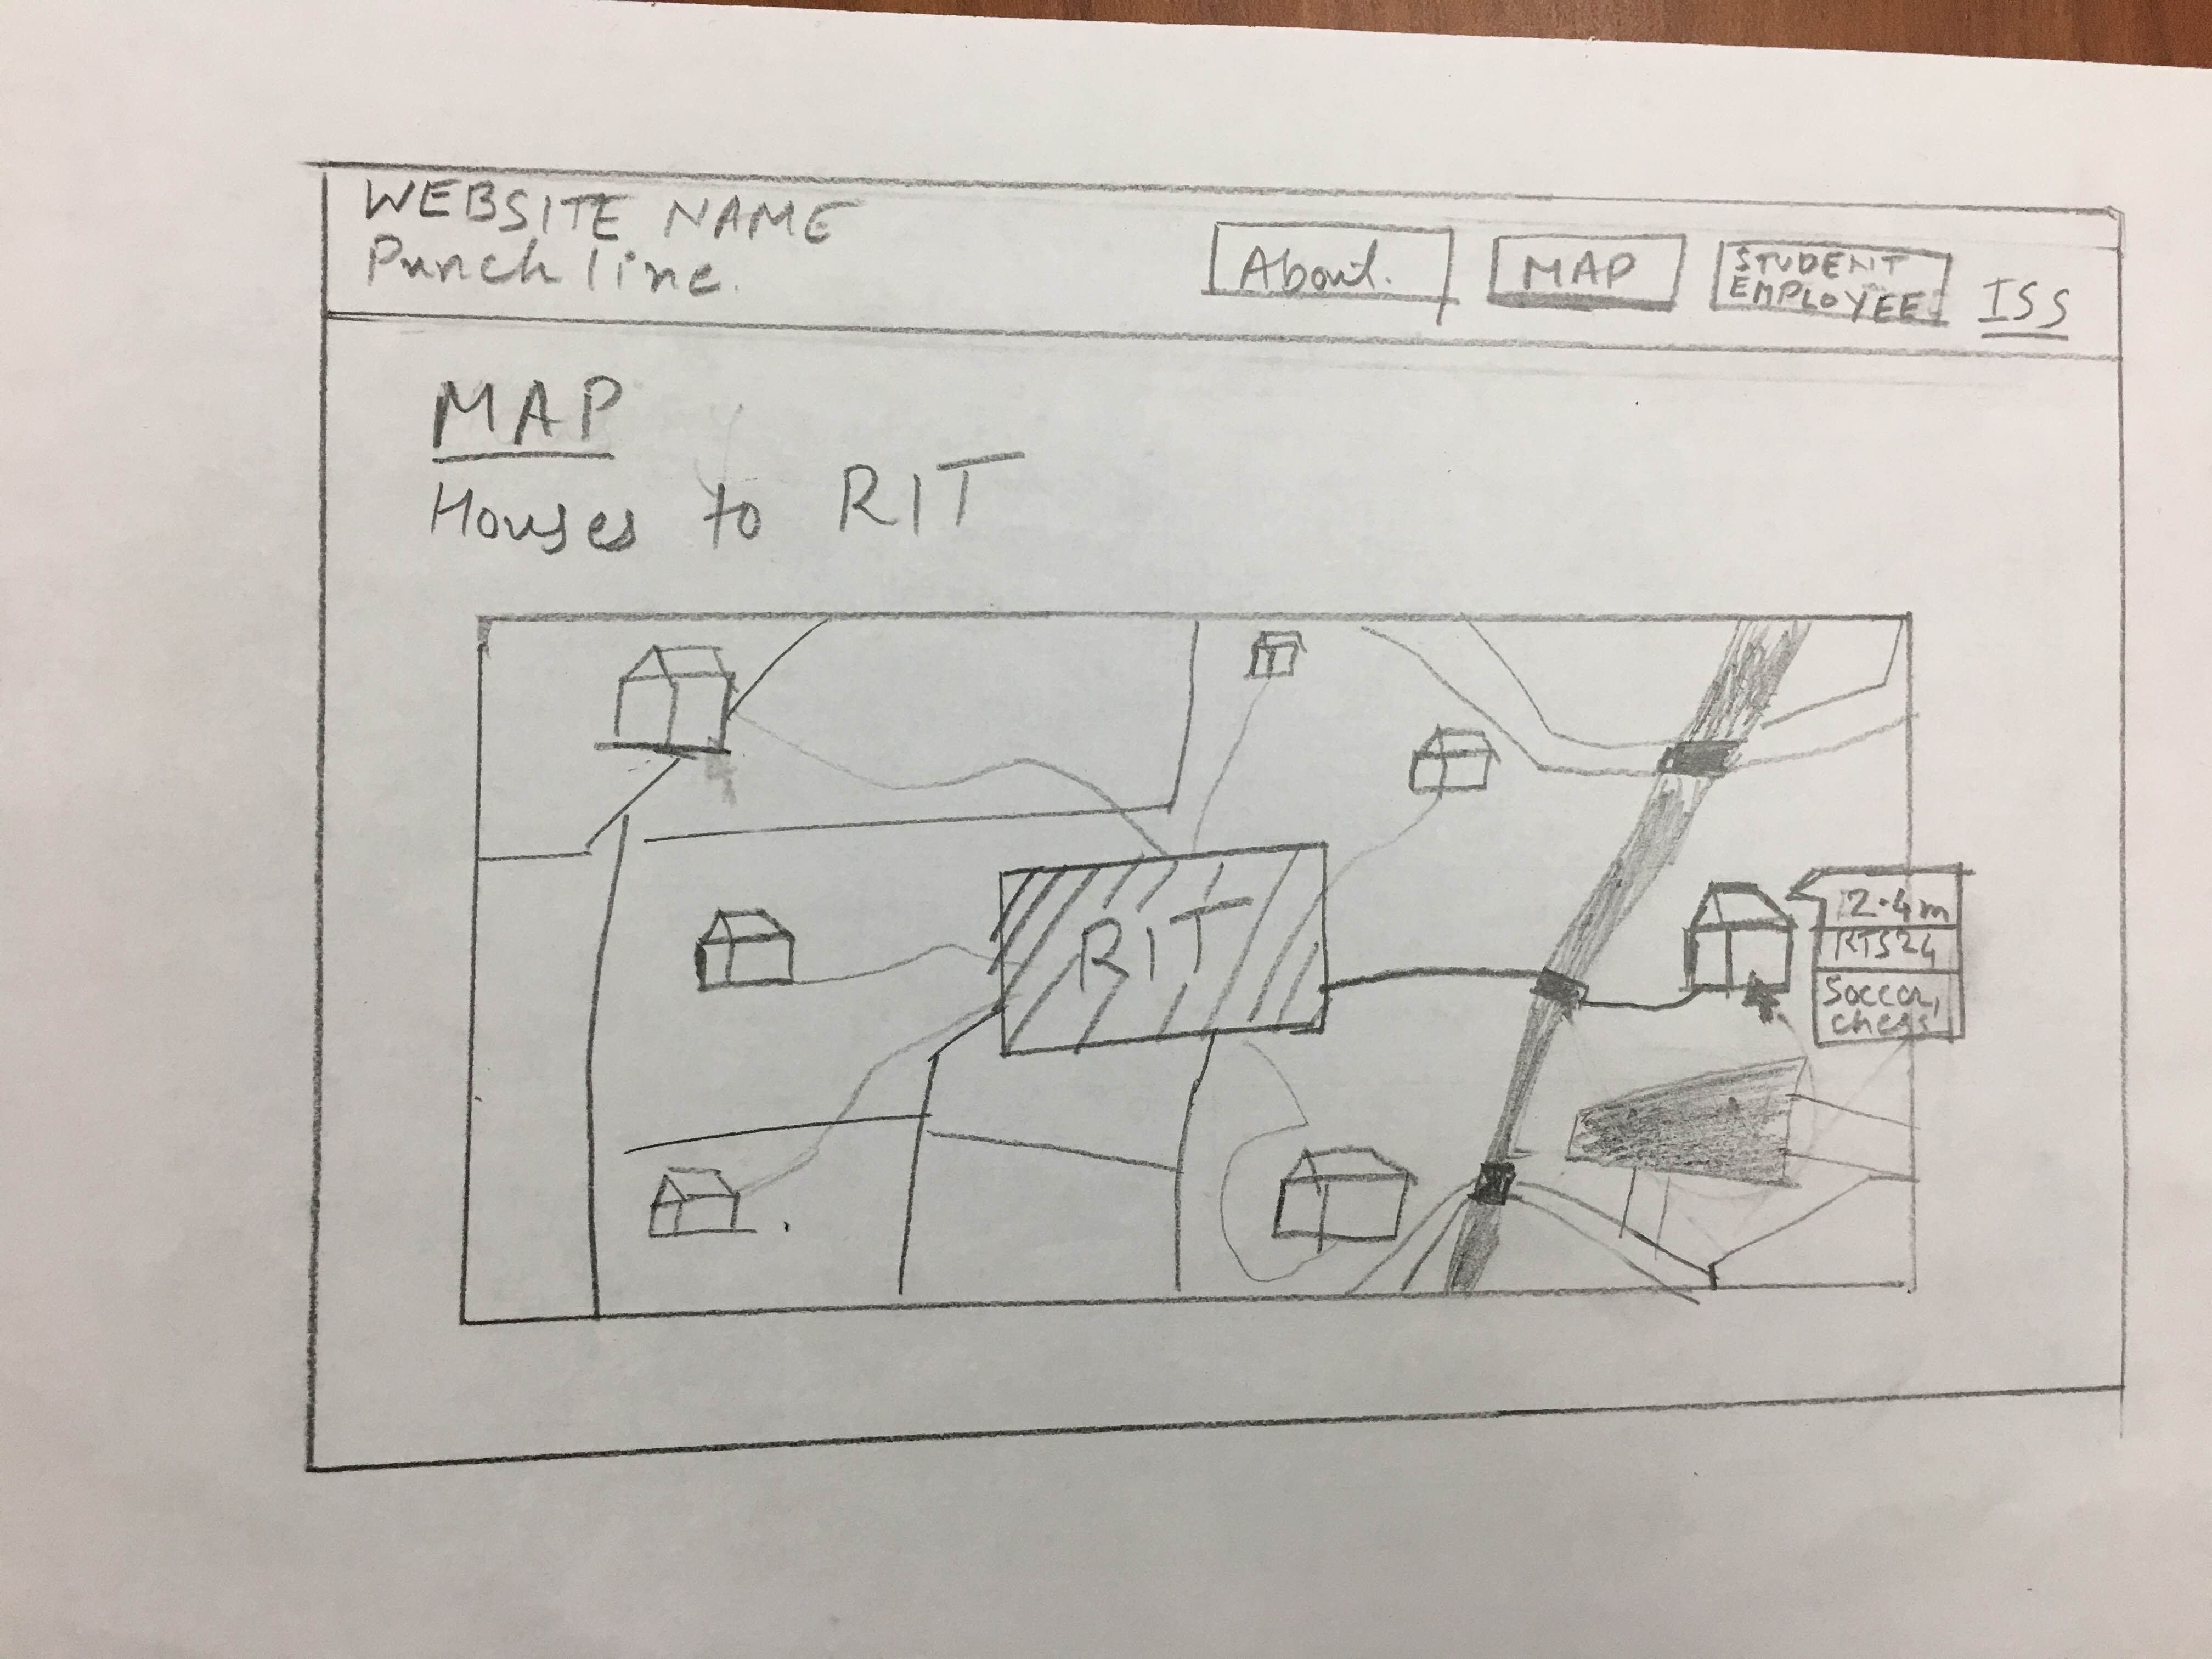 WEBSITE NAME
Punch line.
About.
MAP
STUDENT
EMPLOYEE
ISS
MAP
Houses to RIT
RIT
2.4m
Soccer,
chess,